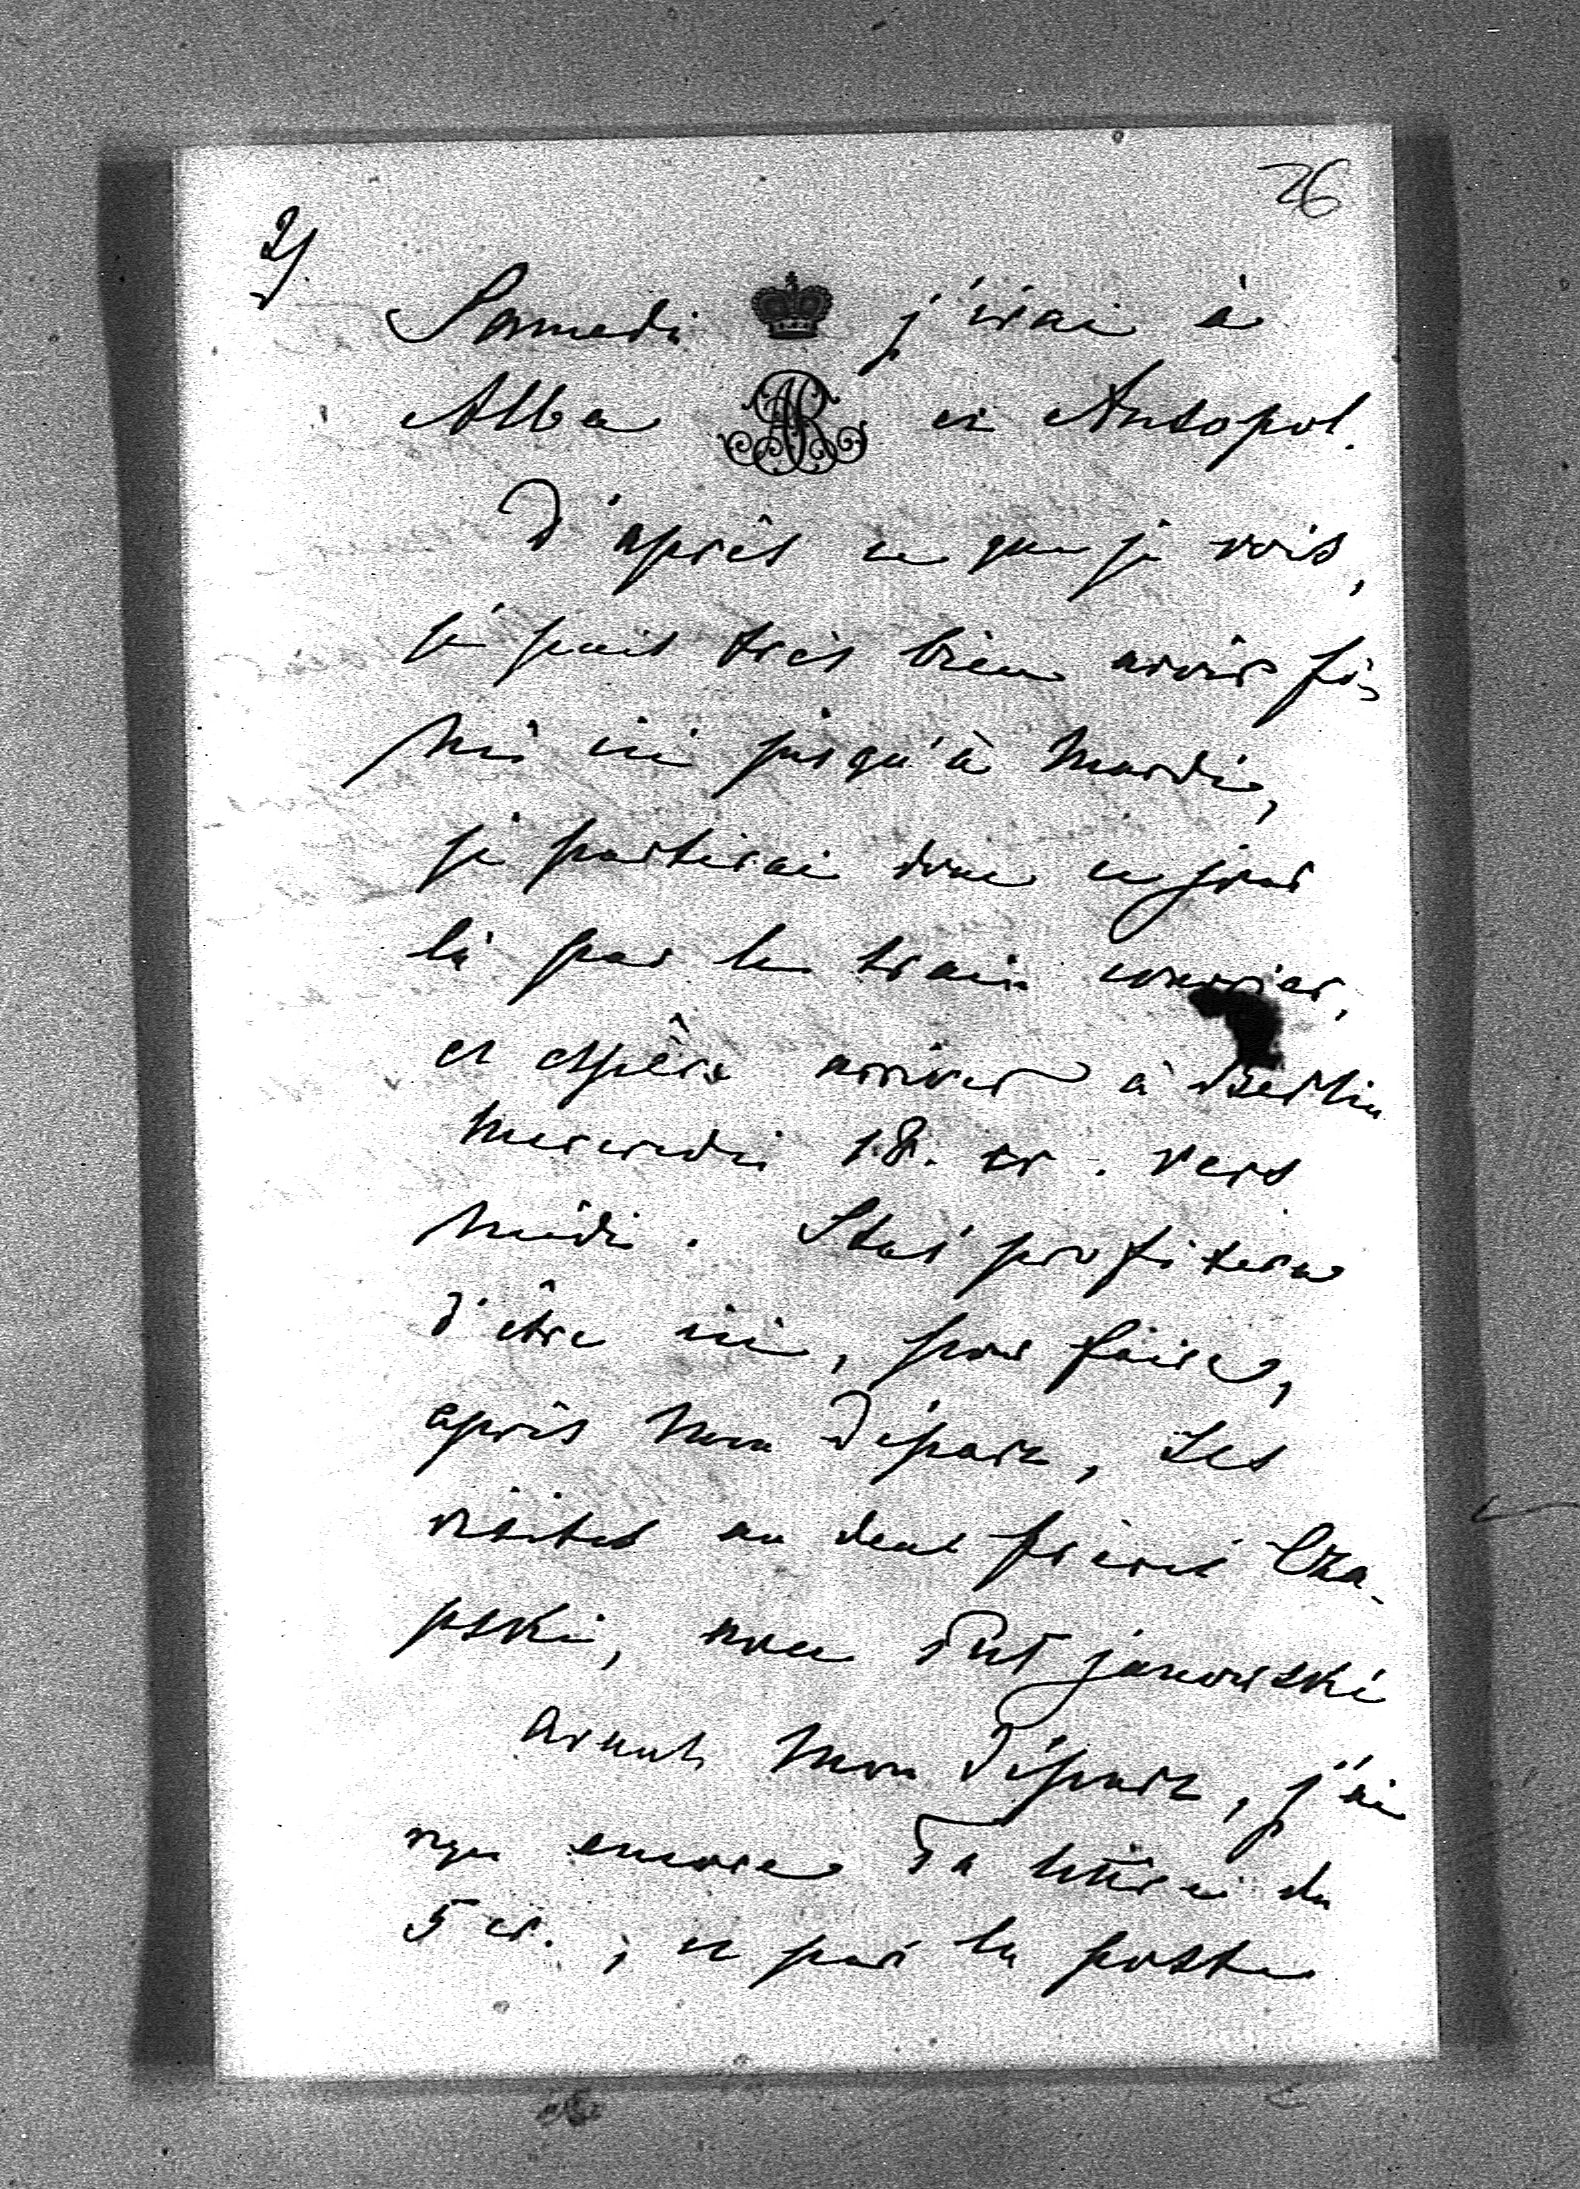 26
2/.
Samedi j'irai à
AR
Alba et Antopol.
D'après ce que je vois,
je puis très bien avoir fi-
ni ici jusqu'à Mardi,
je partirai donc ce jour
là par le train courrier,
et espère arriver à Berlin
Mercredi 18. cr. vers
Midi. Staś profitera
d'être ici, pour faire,
après mon départ, ses
visites au deux frères Cza-
pski, avec
Avant mon départ, j'ai
reçu encore Ta lettre du
5 cr., et par la poste